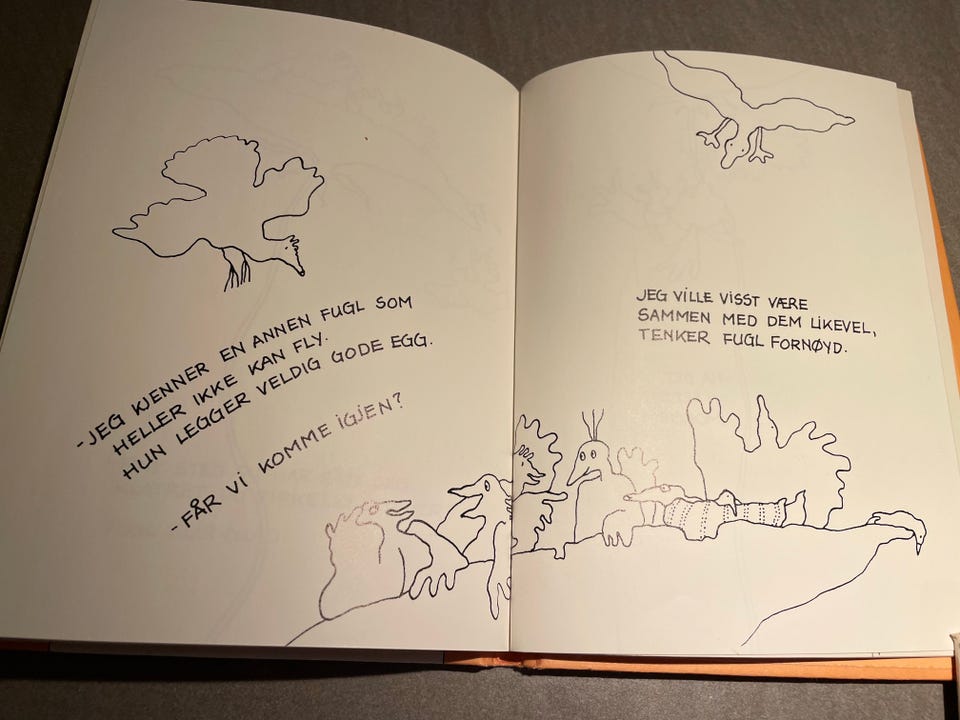 -JEG KJENNER EN ANNEN FUGL SOM
HELLER IKKE KAN FLY.
HUN LEGGER VELDIG GODE EGG.
-FÅR VI KOMME IGJEN?
JEG VILLE VISST VÆRE
SAMMEN MED DEM LIKEVEL,
TENKER FUGL FORNØYD.